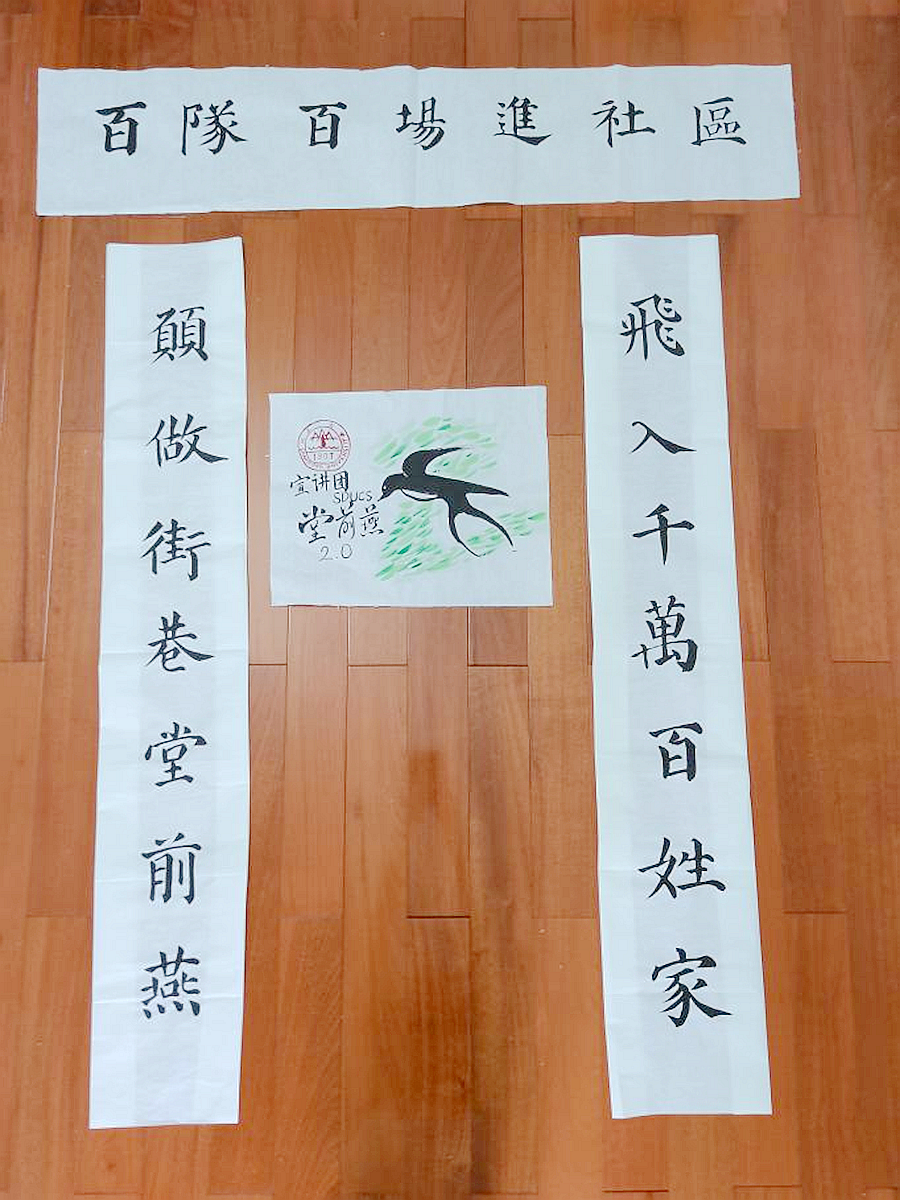 百隊百場進社區
願做街巷堂前燕
飛入千萬百姓家
1901
宣讲团
SDUCS
堂前燕
2.0